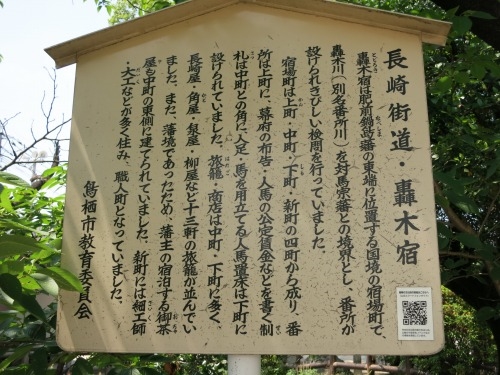 長崎街道・轟木宿
轟木宿は肥前鍋島藩の東端に位置する国境の宿場町で、
轟木川(別名番所川)を対馬宗藩との境界とし、番所が
設けられきびしい検問を行っていました。
宿場町は上町・中町・下町・新町の四町から成り、番
所は上町に、幕府の布告・人馬の公定賃金などを書く制
札は中町との角に、人足・馬を用立てる人馬置床は下町に
設けられていました。旅籠・商店は中町・下町に多く、
長崎屋・角屋・糀屋・柳屋など十三軒の旅籠が並んでい
ました。また、藩境であったため、藩主の宿泊する御茶
屋も中町の東側に建てられていました。新町には細工師
・大工などが多く住み、職人町となっていました。
鳥栖市教育委員会